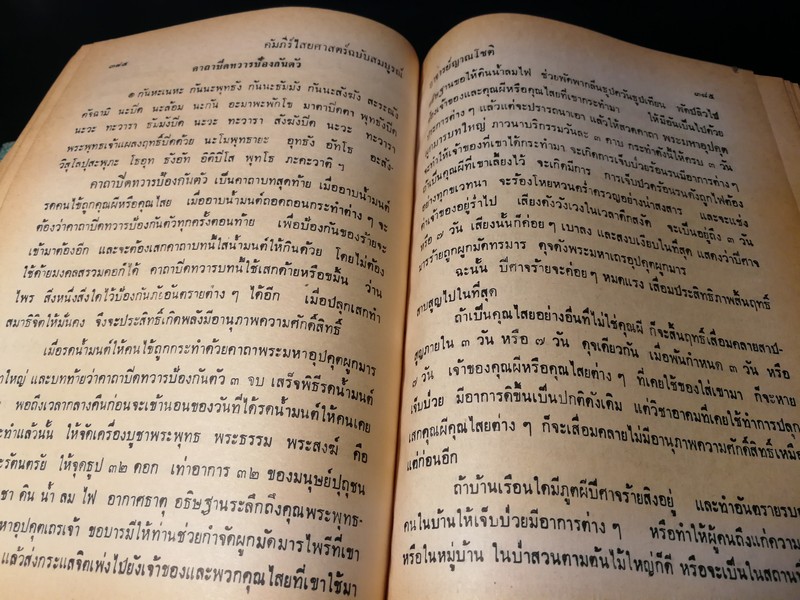 ๓๘๔
คัมภีร์ไสยศาสตร์ฉบับสมบูรณ์
คาถาปิดทวารป้องกันตัว
๏ กันหะเนหะ กันนะพุทธัง กันนะธัมมัง กันนะสังฆัง สะระณัง
คัจฉามิ นะปิด นะล้อม นะกัน อะมาะพะภักโข มาคาปิดคา พุทธังปิด
นะวะ ทะวารา ธัมมังปิด นะวะ ทะวารา สังฆังปิด นะวะ ทะวารา
พระพุทธเจ้าแผลงฤทธิ์ปิดด้วย นะโมพุทธายะ อุทธัง อัทโธ อะสัง-
วิสุโลปุสะพุภะ โธอุท ธังอัท อิคิปิโส พุทโธ ภะคะวาติ ฯ
คาถาปิดทวารป้องกันตัว เป็นคาถาบทสุดท้าย เมื่ออาบน้ำมนต์
รดคนไข้ถูกคุณผีหรือคุณไสย เมื่ออาบน้ำมนต์ถอดถอนกระทำต่าง ๆ จะ
ต้องว่าคาถาปิดทวารป้องกันตัวทุกครั้งตอนท้าย เพื่อป้องกันของร้ายจะ
เข้ามาต้องอีก และจะต้องเสกคาถาบทนี้ใส่น้ำมนต์ให้กินด้วย โดยไม่ต้อง
ใช้ด้ายมงคลสรวมคอก็ได้ คาถาปิดทวารบทนี้ใช้เสกด้ายหรือขมิ้น ว่าน
ไพร สิ่งหนึ่งสิ่งใดไว้ป้องกันภัยอันตรายต่าง ๆ ได้อีก เมื่อปลุกเสกทำ
สมาธิจิตให้มั่นคง จึงจะประสิทธิ์เกิดพลังมีอานุภาพความศักดิ์สิทธิ์
เมื่อรดน้ำมนต์ให้คนไข้ถูกกระทำด้วยคาถาพระมหาอุปคุตผูกมาร
ใหญ่ และบทท้ายว่าคาถาปิดทวารป้องกันตัว ๓ จบ เสร็จพิธีรดน้ำมนต์
พอถึงเวลากลางคืนก่อนจะเข้านอนของวันที่ได้รดน้ำมนต์ให้คนเคย
ทำแล้วนั้น ให้จัดเครื่องบูชาพระพุทธ พระธรรม พระสงฆ์ คือ
ะรัตนตรัย ให้จุดธูป ๓๒ ดอก เท่าอาการ ๓๒ ของมนุษย์ปุถุชน
ชา ดิน น้ำ ลม ไฟ อากาศธาตุ อธิษฐานระลึกถึงคุณพระพุทธ-
หาอุปคุตเถรเจ้า ขอบารมีให้ท่านช่วยกำจัดผูกมัดมารไพรีที่เขา
แล้วส่งกระแสจิตเพ่งไปยังเจ้าของและพวกคุณไสยที่เขาใช้มา
อาจารย์ญาณโชติ
๓๘๕
ธิษฐานขอให้ดินน้ำลมไฟ ช่วยพัดพากลิ่นธูปควันธูปเทียน พัดปลิวไป
เจ้าของและคุณผีหรือคุณไสยที่เขากระทำมา ให้มีอันเป็นไปด้วย
อาการต่าง ๆ แล้วแต่จะปรารถนาเอา แล้วให้สวดคาถา พระมหาอุปคุต
ผูกมารบทใหญ่ ภาวนาบริกรรมวันละ ๓ คาบ กระทำดังนี้ให้ครบ ๓ วัน
จะทำให้เจ้าของที่เขาได้กระทำมา จะเกิดการเจ็บป่วยร้อนรนมีอาการต่าง ๆ
ถ้าเป็นคุณผีที่เขาเลี้ยงไว้ จะเกิดมีการ การเจ็บปวดร้อนรนดังถูกไฟต้อง
อย่างทุกขเวทนา จะร้องโหยหวนคร่ำครวญอย่างน่าสงสาร และจะแช่ง
ด่าเจ้าของอยู่ร่ำไป เสียงดังวังเวงในเวลาดึกสงัด จะเป็นอยู่ถึง ๓ วัน
หรือ ๗ วัน เสียงนั้นก็ค่อย ๆ เบาลง และสงบเงียบในที่สุด แสดงว่าปีศาจ
มารร้ายถูกผูกมัดทรมาร ดุจดังพระมหาเถรอุปคุตผูกมาร
ฉะนั้น ปีศาจร้ายจะค่อยๆ หมดแรง เสื่อมประสิทธิภาพสิ้นฤทธิ์
สาบสูญไปในที่สุด
ถ้าเป็นคุณไสยอย่างอื่นที่ไม่ใช้คุณผี ก็จะสิ้นฤทธิ์เสื่อมคลายสาป-
สูญภายใน ๓ วัน หรือ ๗ วัน ดุจเดียวกัน เมื่อพ้นกำหนด ๓ วัน หรือ
๗ วัน เจ้าของคุณผีหรือคุณไสยต่าง ๆ ที่เคยใช้ของใส่เขามา ก็จะหาย
เจ็บป่วย มีอาการดีขึ้นเป็นปกติดังเดิม แต่วิชาอาคมที่เคยใช้ทำการปลุก
เสกคุณผีคุณไสยต่าง ๆ ก็จะเสื่อมคลายไม่มีอานุภาพความศักดิ์สิทธิ์เหมือ
แต่ก่อนอีก
ถ้าบ้านเรือนใดมีภูตผีปีศาจร้ายสิงอยู่ และทำอันตรายรบก
คนในบ้านให้เจ็บป่วยมีอาการต่าง ๆ หรือทำให้ผู้คนถึงแก่ความ
หรือในหมู่บ้าน ในป่าสวนตามต้นไม้ใหญ่ก็ดี หรือจะเป็นในสถานที่